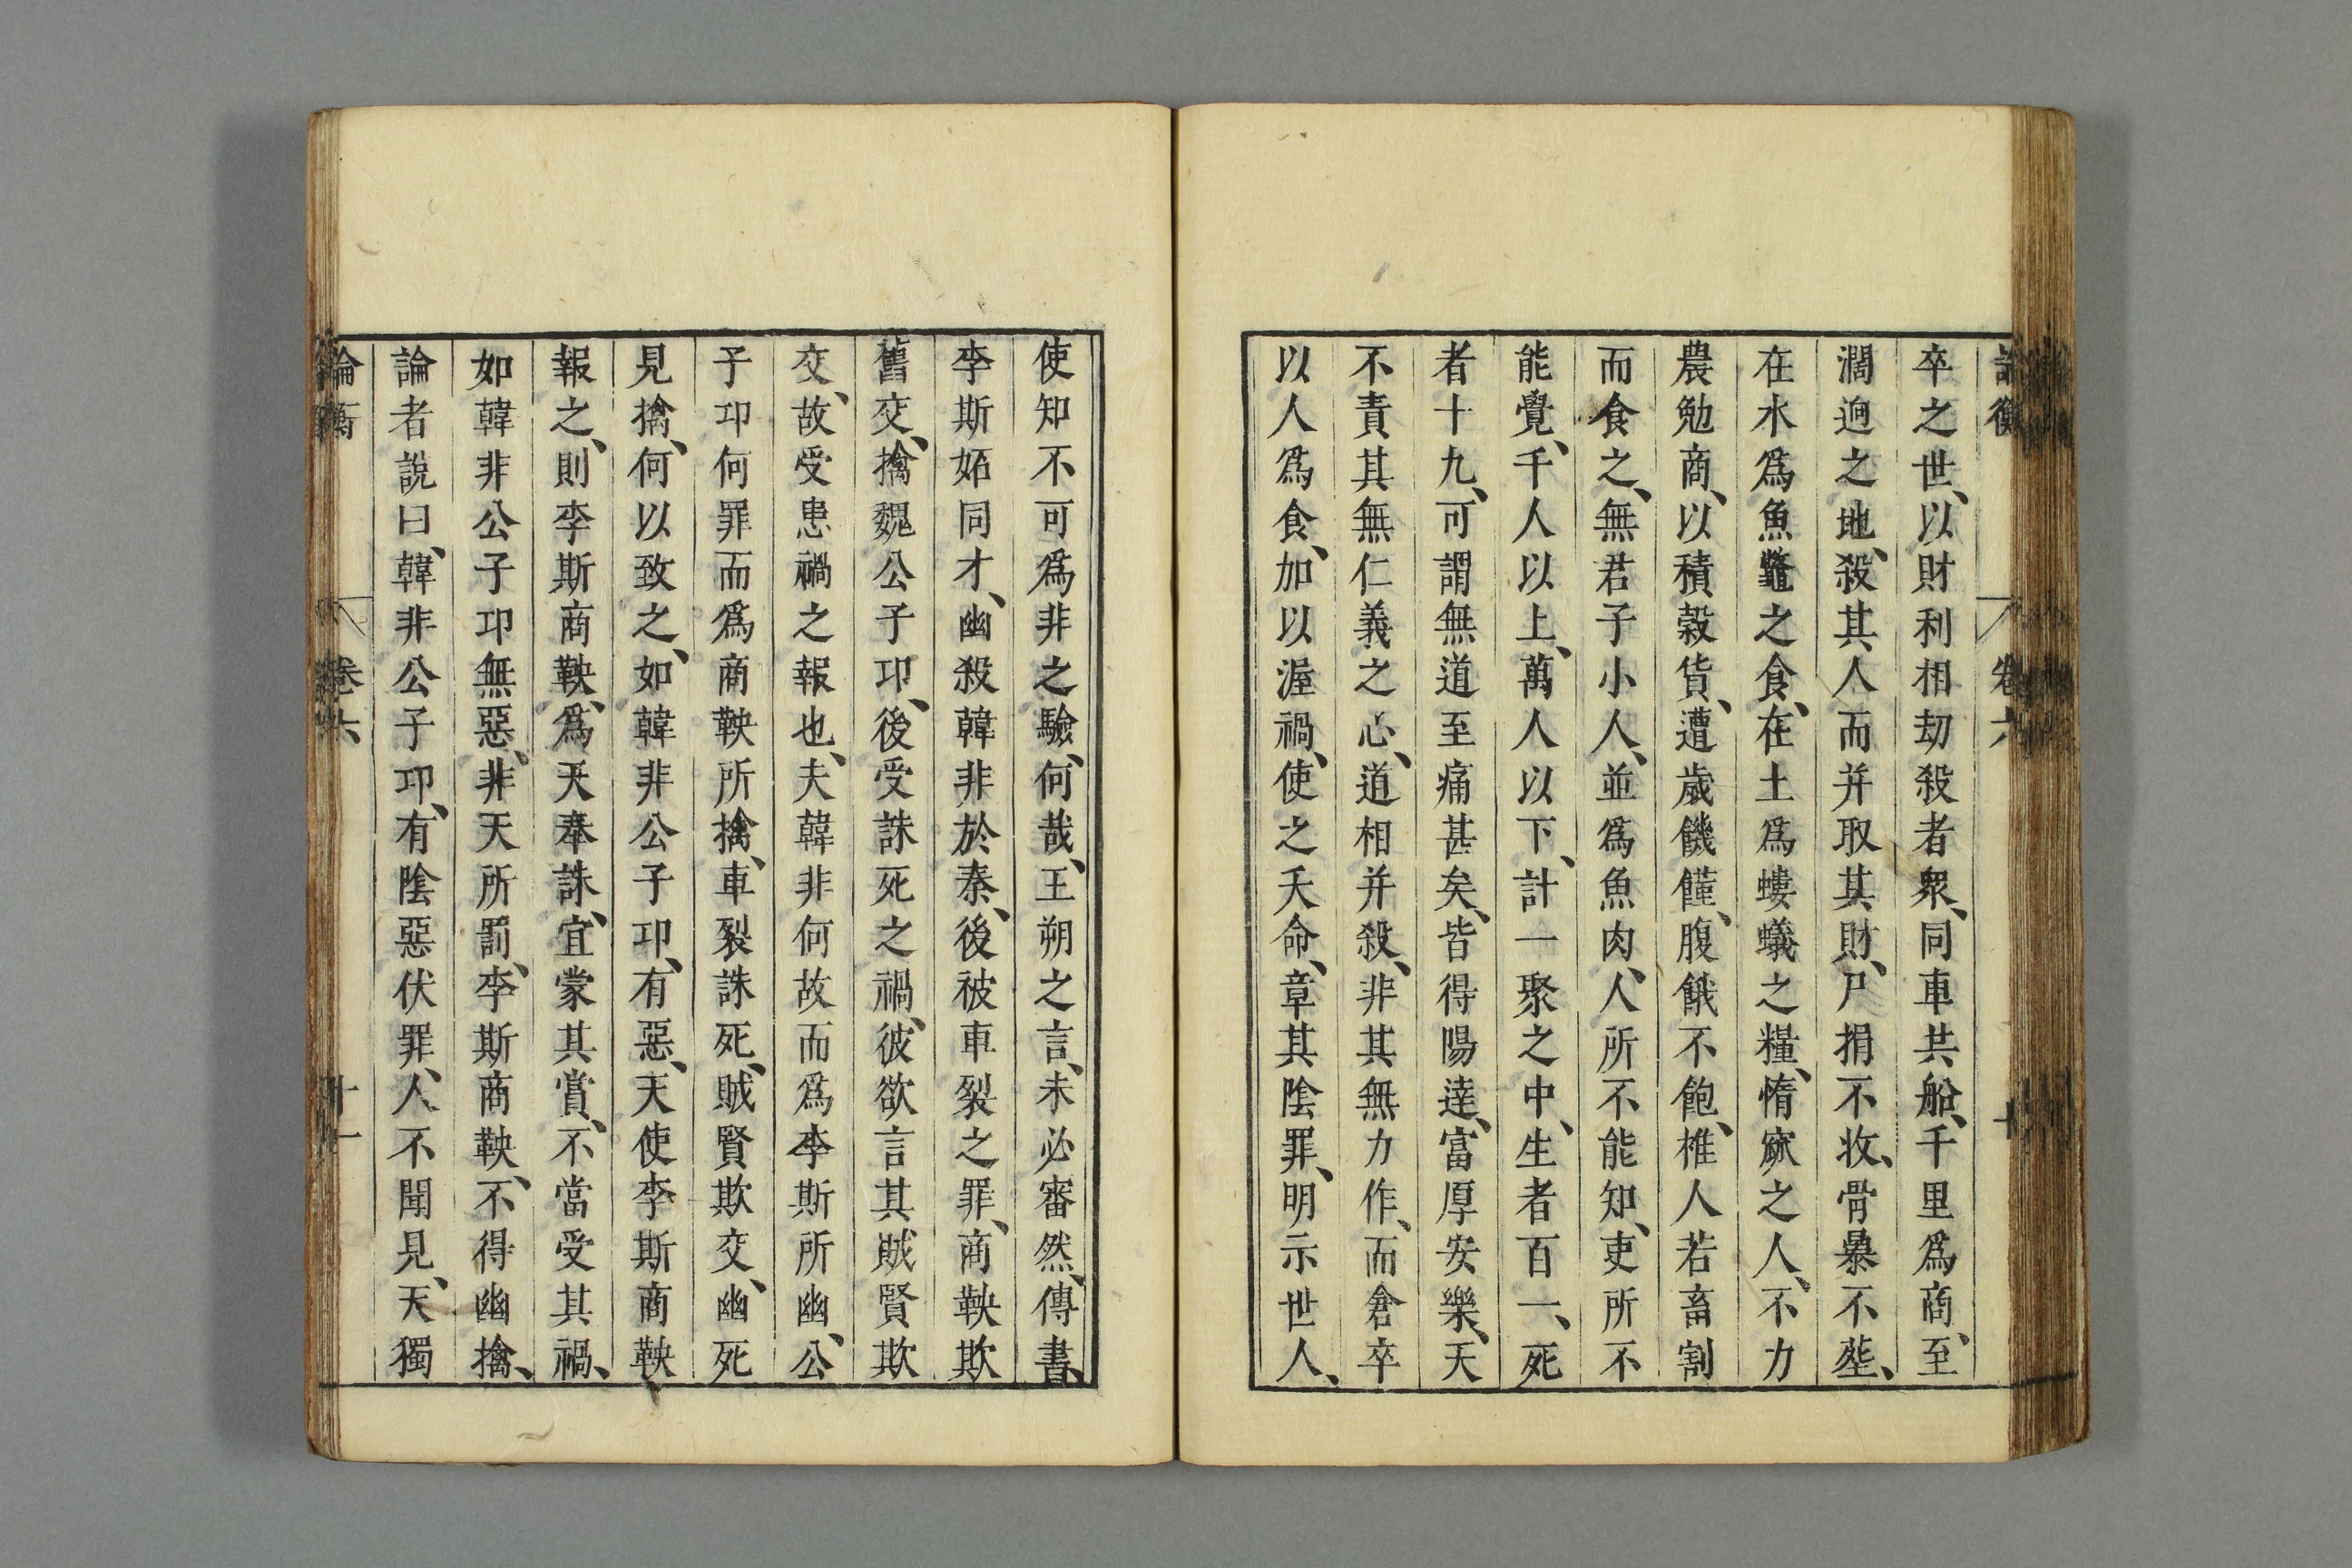 論衡 卷六 十
卒之世、以財利相劫殺者衆、同車共船、千里爲商、至
濶逈之地、殺其人而并取其財、尸捐不收、骨暴不塟、
在水爲魚鼈之食、在土爲螻蟻之糧、惰窳之人、不力
農勉商、以積穀貨、遭歲饑饉、腹餓不飽、椎人若畜割
而食之、無君子小人、並爲魚肉、人所不能知、吏所不
能覺、千人以上、萬人以下、計一聚之中、生者百一、死
者十九、可謂無道至痛甚矣、皆得陽達、富厚安樂、天
不責其無仁義之心、道相并殺、非其無力作、而倉卒
以人爲食、加以渥禍、使之夭命、章其陰罪、明示世人、
使知不可爲非之驗、何哉、王朔之言、未必審然、傳書、
李斯妬同才、幽殺韓非於秦、後被車裂之罪、商鞅欺
舊交、擒魏公子卬、後受誅死之禍、彼欲言其賊賢欺
交、故受患禍之報也、夫韓非何故而爲李斯所幽、公
子卬何罪而爲商鞅所擒、車裂誅死、賊賢欺交、幽死
見擒、何以致之、如韓非公子卬、有惡、天使李斯商鞅
報之、則李斯商鞅、爲天奉誅、宜蒙其賞、不當受其禍、
如韓非公子卬無惡、非天所罰、李斯商鞅、不得幽擒、
論者說曰、韓非公子卬、有陰惡伏罪、人不聞見、天獨
論衡 卷六 十一